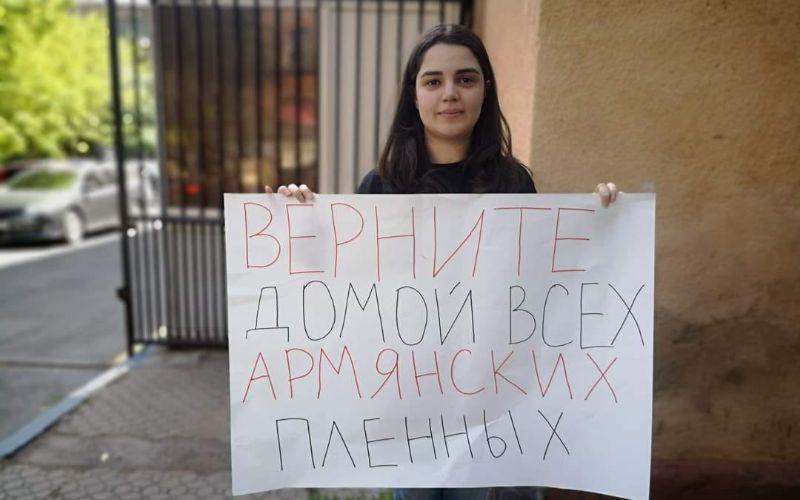 ВЕРНИТЕ
ДОМОЙ ВСЕХ
АРМЯНСКИХ
ПЛЕННЫХ